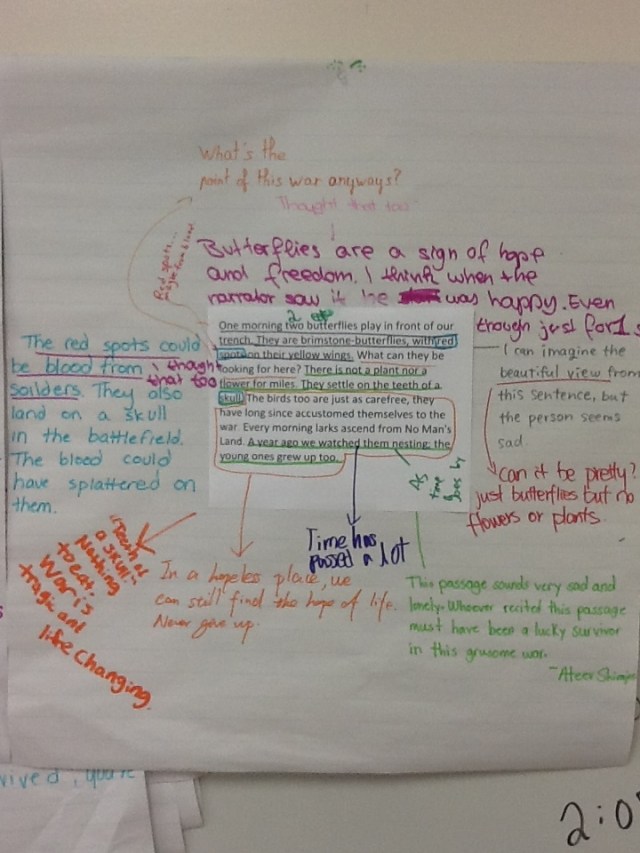 What's the
point of this war anyways?
Thought that too
Butterflies are a sign of hope
and freedom. I think when the
narrator saw it he was happy. Even
though just for 1
Red spots...
One morning two butterflies play in front of our
trench. They are brimstone-butterflies, with red
spots on their yellow wings. What can they be
looking for here? There is not a plant nor a
flower for miles. They settle on the teeth of a
skull. The birds too are just as carefree, they
have long since accustomed themselves to the
war. Every morning larks ascend from No Man's
Land. A year ago we watched them nesting; the
young ones grew up too.
2
The red spots could
be blood from
soilders. They also
land on a skull
in the battlefield.
The blood could
have splattered on
them.
i thought
that too
I can imagine the
beautiful view from
this sentence, but
the person seems
sad
Can it be pretty?
just butterflies but no
flowers or plants.
As
time
goes by
Time has
passed a lot
"Teeth of
a skull"
Nothing
to eat.
War is
tragic and
life changing.
In a hopeless place, we
can still find the hope of life.
Never give up.
This passage sounds very sad and
lonely. Whoever recited this passage
must have been a lucky survivor
in this gruesome war.
vived, you're
2:0